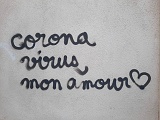 corona
virus
mon amour♡